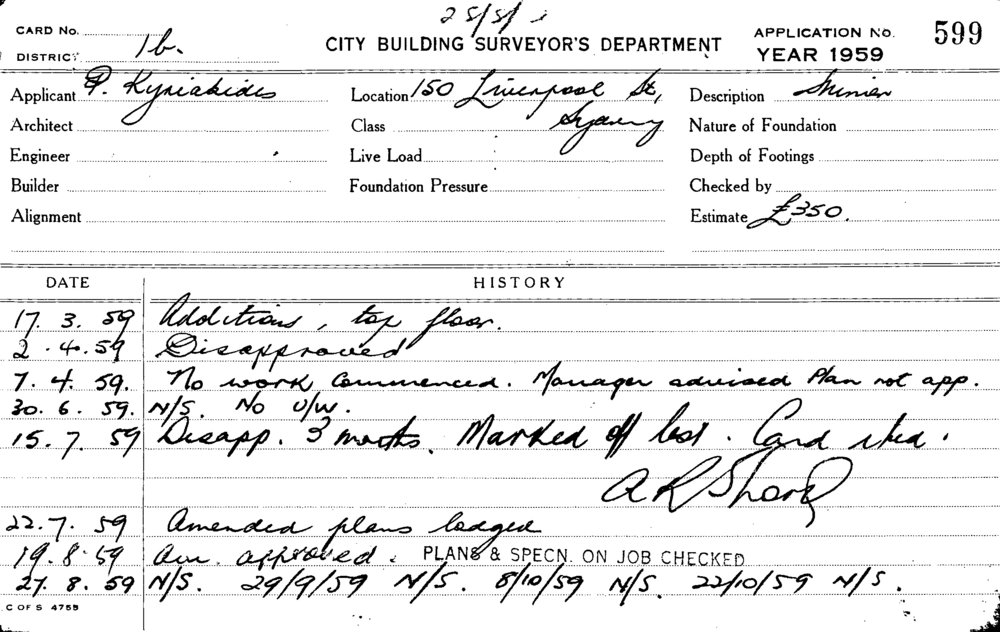 25/5/
CARD No. APPLICATION No. 599
DISTRICT 1b. CITY BUILDING SURVEYOR'S DEPARTMENT YEAR 1959
Applicant P. Kyriakides Location 150 Liverpool St, Description Minor
Architect Class Sydney Nature of Foundation
Engineer Live Load Depth of Footings
Builder Foundation Pressure Checked by
Alignment Estimate £350.
DATE HISTORY
17. 3. 59 Additions, top floor.
2. 4. 59 Disapproved
7. 4. 59. No work commenced. Manager advised Plan not app.
30. 6. 59. N/S. No U/W.
15. 7. 59 Disapp. 3 months. Marked off list. Card
A R Sharp
22. 7. 59 Amended plans lodged
19. 8. 59 approved. PLANS & SPECN. ON JOB CHECKED
27. 8. 59 N/S. 29/9/59 N/S. 8/10/59 N/S. 22/10/59 N/S.
C OF S 4755